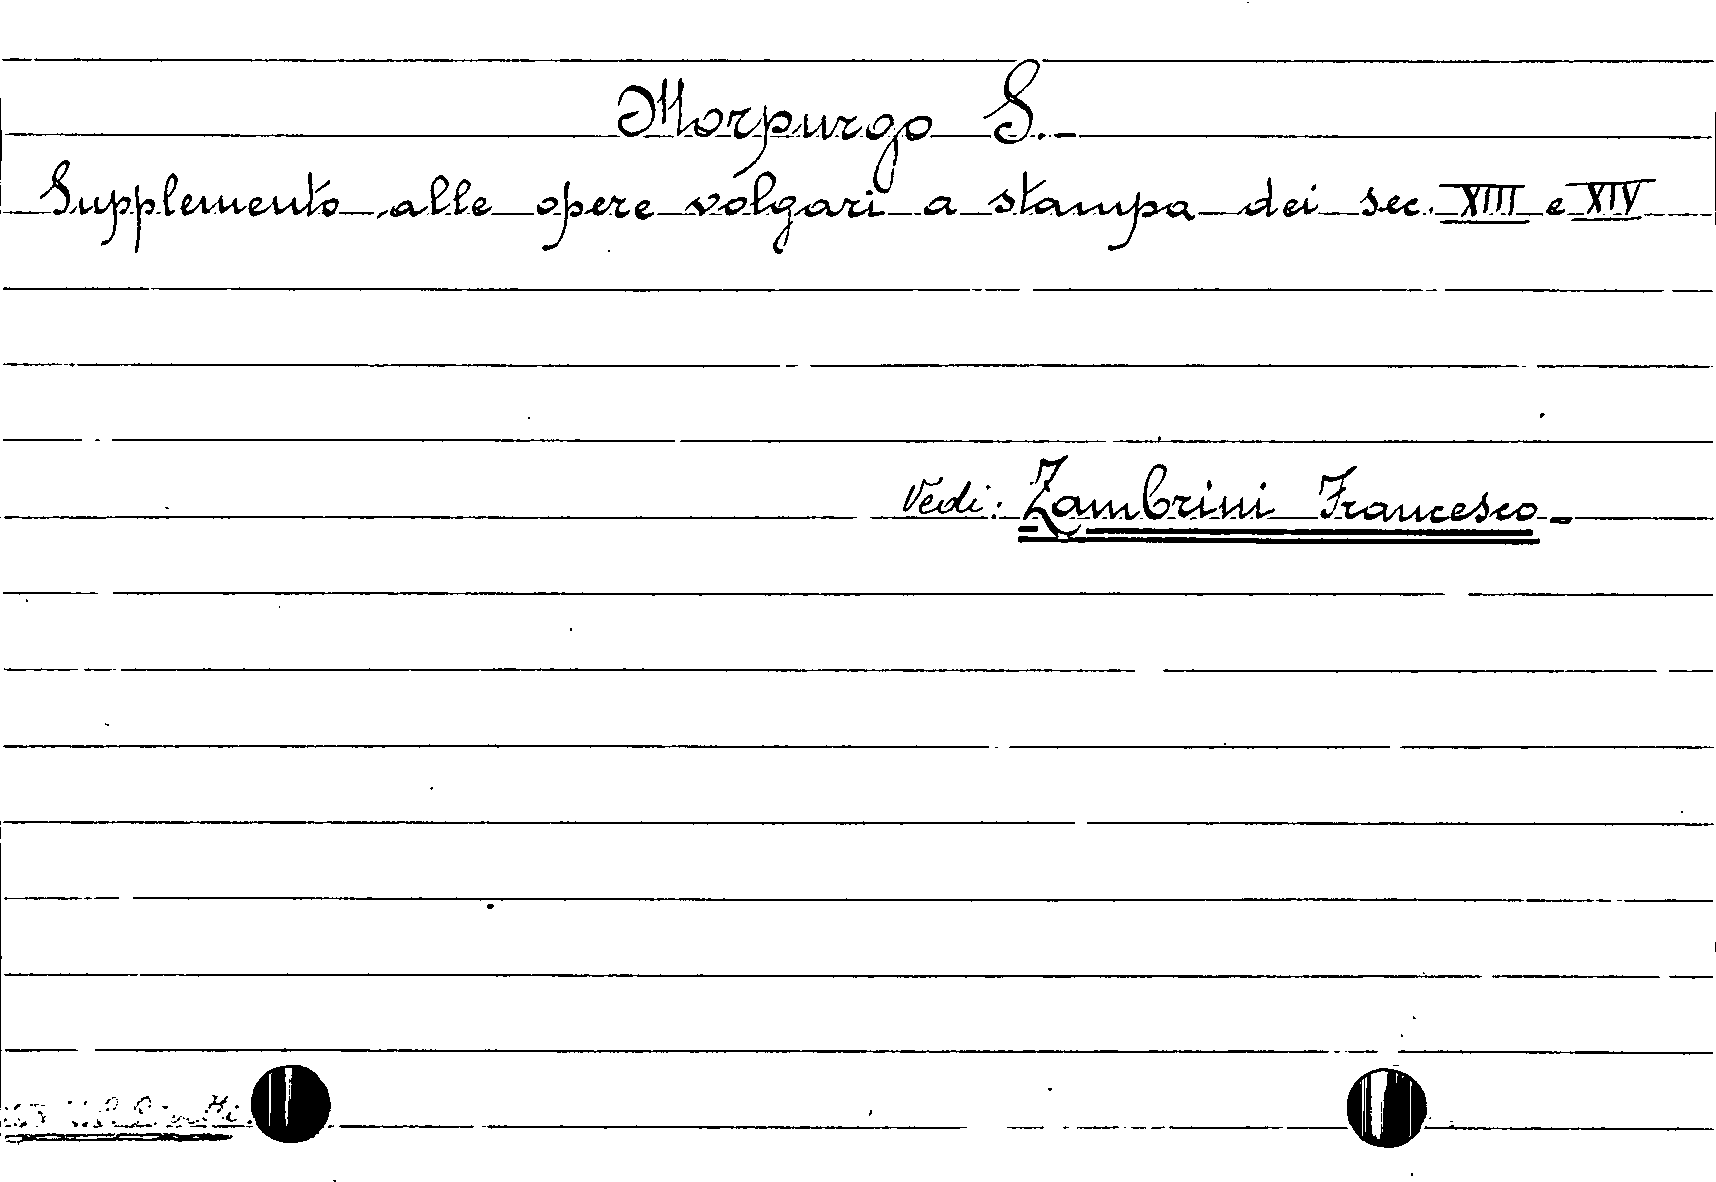 Morpurgo S.-
Supplemento alle opere volgari a stampa dei sec. XIII e XIV
Vedi: Zambrini Francesco -